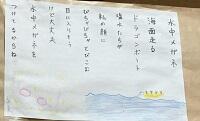 水中メガネ
海面走る
ドラゴンボート
塩水たちが
私の顔に
ぴちゃぴちゃとびこむ
目に入りそう
けど大丈夫
水中メガネを
つけてるからね